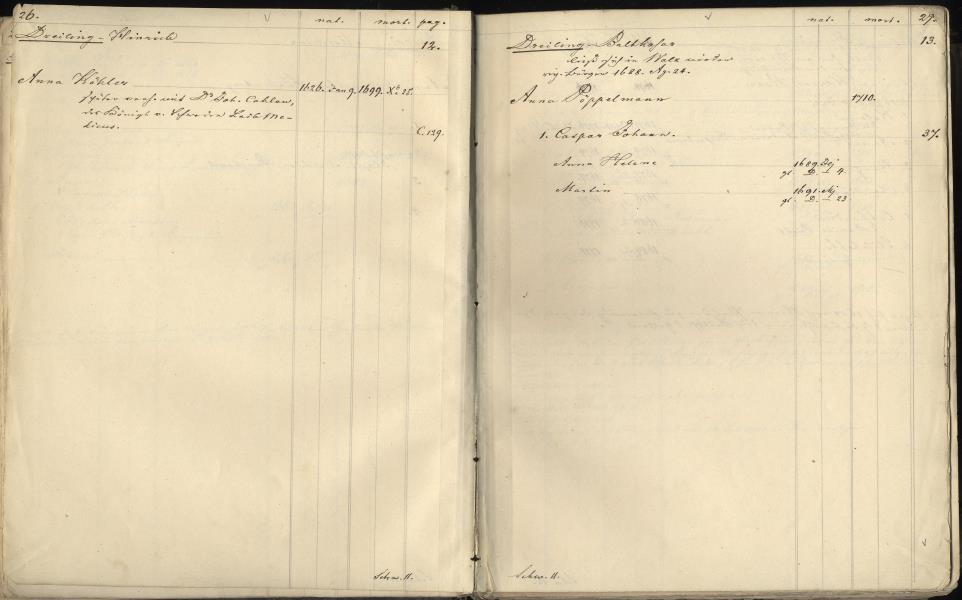 26.
nat. mort. pag.
Dreiling - Hinrich 12.
Anna Köhler 1626. Jan 9. 1699. Xbr 25.
später verh. mit Dr. Joh.
des Königs v. Schweden Leib Me-
dicus. C. 139.
Schw. II.
nat. mort. 29.
Dreiling - Balthasar 13.
ließ sich in Walk nieder
rig. Bürger 1688. Ag. 24.
Anna Pöppelmann 1710.
1. Caspar Johann. 37.
Anna Helene 1689.
gl. D. I 4.
Martin 1691.
gl. D. I 23
Schw. II.